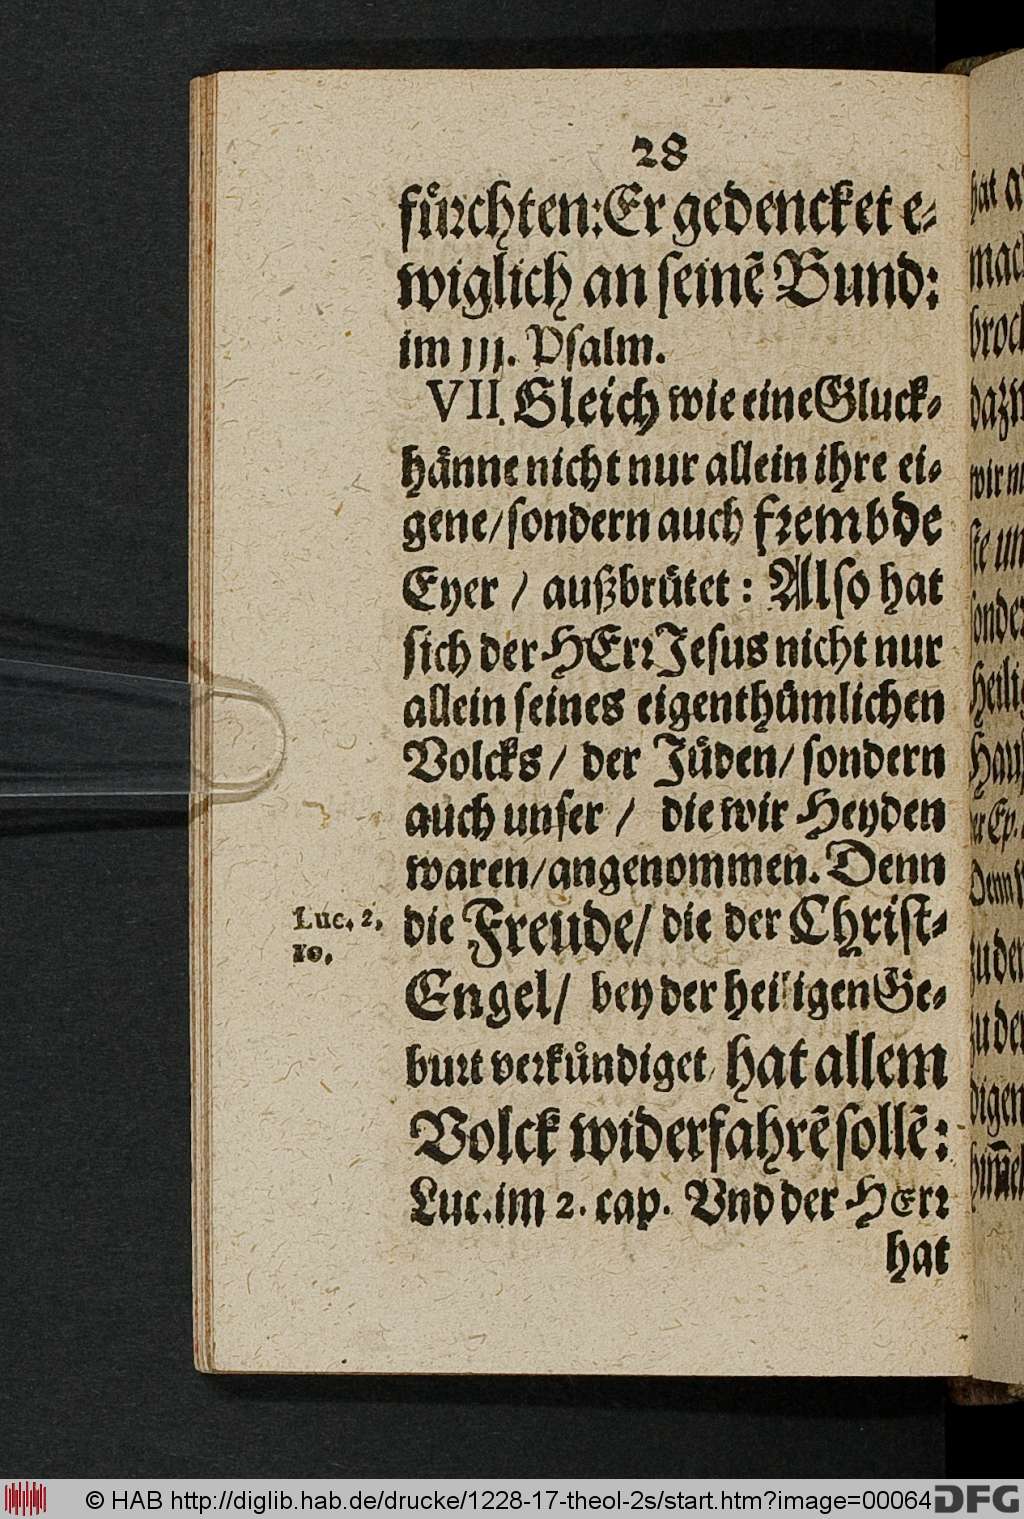 28
fürchten: Er gedencket e-
wiglich an seinē Bund:
im 111. Psalm.
VII. Gleich wie eine Gluck-
hänne nicht nur allein ihre ei-
gene / sondern auch frembde
Eyer / außbrütet: Also hat
sich der HErr Jesus nicht nur
allein seines eigenthümlichen
Volcks / der Jüden / sondern
auch unser / die wir Heyden
waren / angenommen. Denn
Luc. 2, die Freude / die der Christ-
10.
Engel / bey der heiligen Ge-
burt verkündiget, hat allem
Volck widerfahrē sollē:
Luc. im 2. cap. Vnd der HErr
hat
© HAB http://diglib.hab.de/drucke/1228-17-theol-2s/start.htm?image=00064
DFG